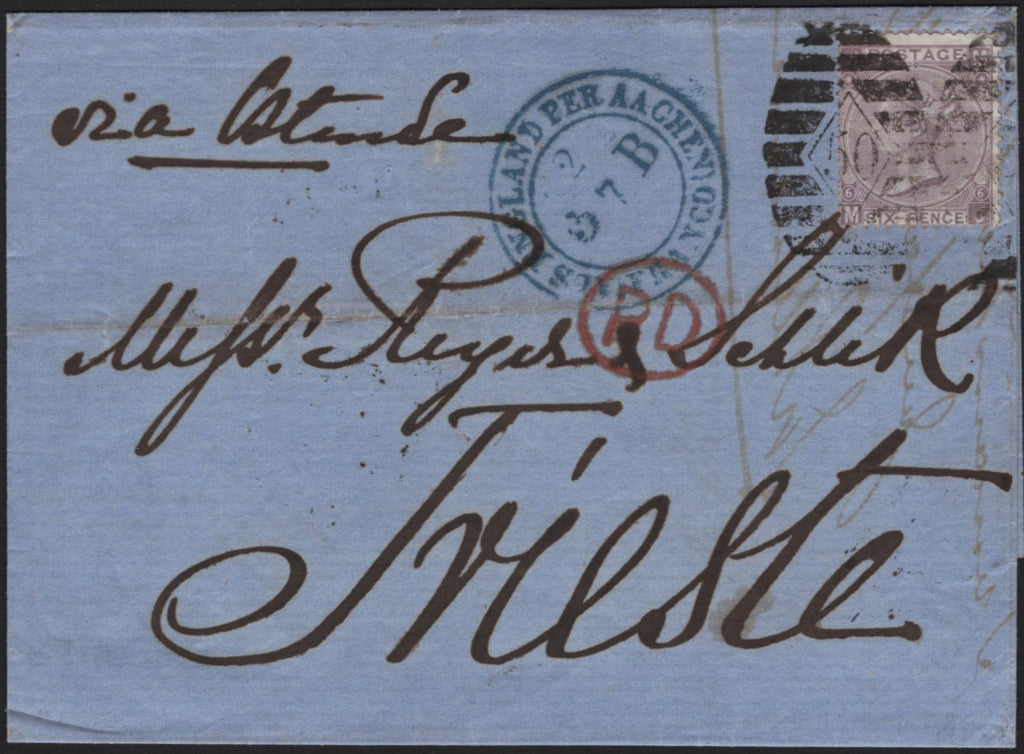 via Ostende
ENGLAND PER AACHEN FRANCO
2
7 B
POSTAGE
6 6
M SIX-PENCE
Messrs. Reyer & Schlik
PD
Trieste